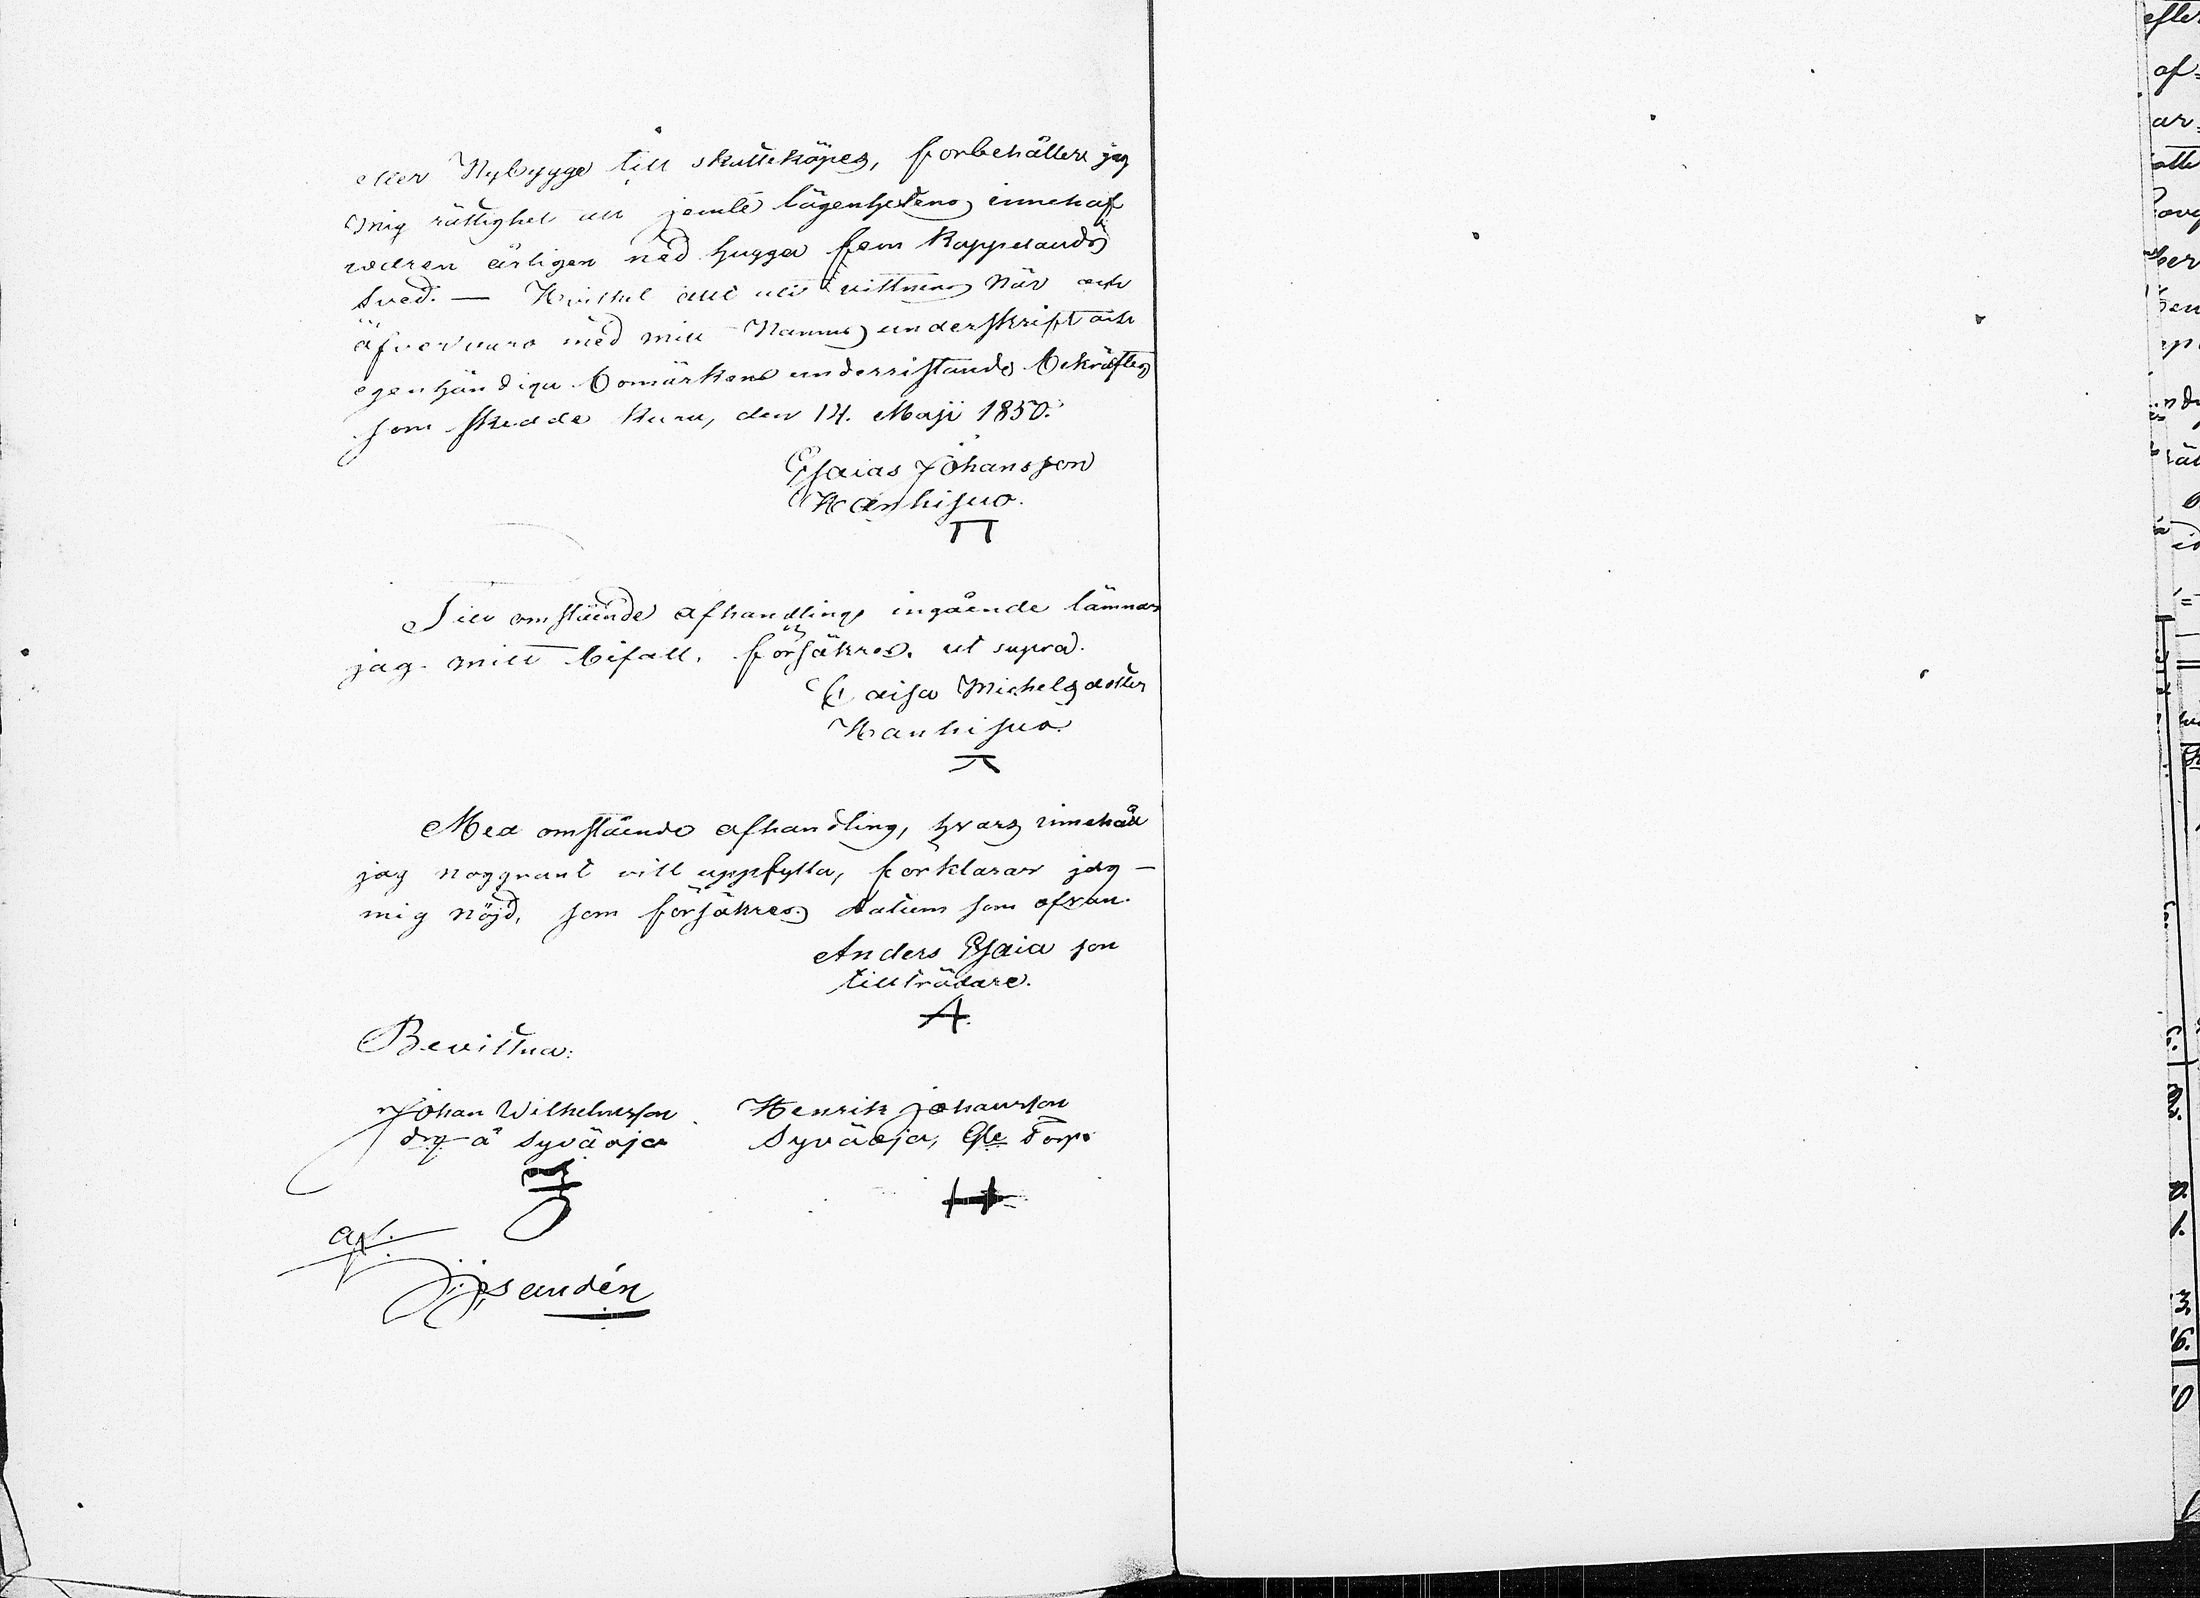 eller Nybygge till skatteköpes, förbehåller jag
mig rättighet att jemte lägenhetens innehaf
waren årligen ned hugga fem Kappelands
sved. — Hvilket allt uti vittnens när och
öfvervaro med mitt Namns underskrift och
egenhändiga bomärkens underristande bekräftes
som skedde Kuru, den 14. Maji 1850.
Esaias Johansson
Hanhisuo.
Till omstående afhandlings ingående lämnar
jag mitt bifall, försäkres, ut supra.
Caisa Michelsdotter
Hanhisuo
Med omstående afhandling, hvars innehåll
jag noggrant vill uppfylla, förklarar jag —
mig nöjd, som försäkres. datum som ofvan.
Anders Esaia son
tillträdare.
A.
Bevittna:
Johan Wilhelmsson Henrik Johansson
drg å Syväoja Syväoja, Torp.